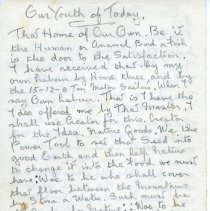 Our Youth of Today.
That Home of Our Own. Be it
the Human or Animal Bird or fish
is the door to the Satisfaction.
I have received that by any
own harbour by Home three and by
the 15-12-8 Ton Motor Sailor. When I
say Own harbour. That is I have the
Idea offered me by That Master. I
shall use Creator for this. Creator
for the Idea. Nature Gods. We the
Power Tool to set that Seed into
good Earth and then let Nature
to change it into the Food we must
have. Woe to he who shall cover
that floor between the Mountains
by Stone &amp; Water. Such must
Nature: Woe to he